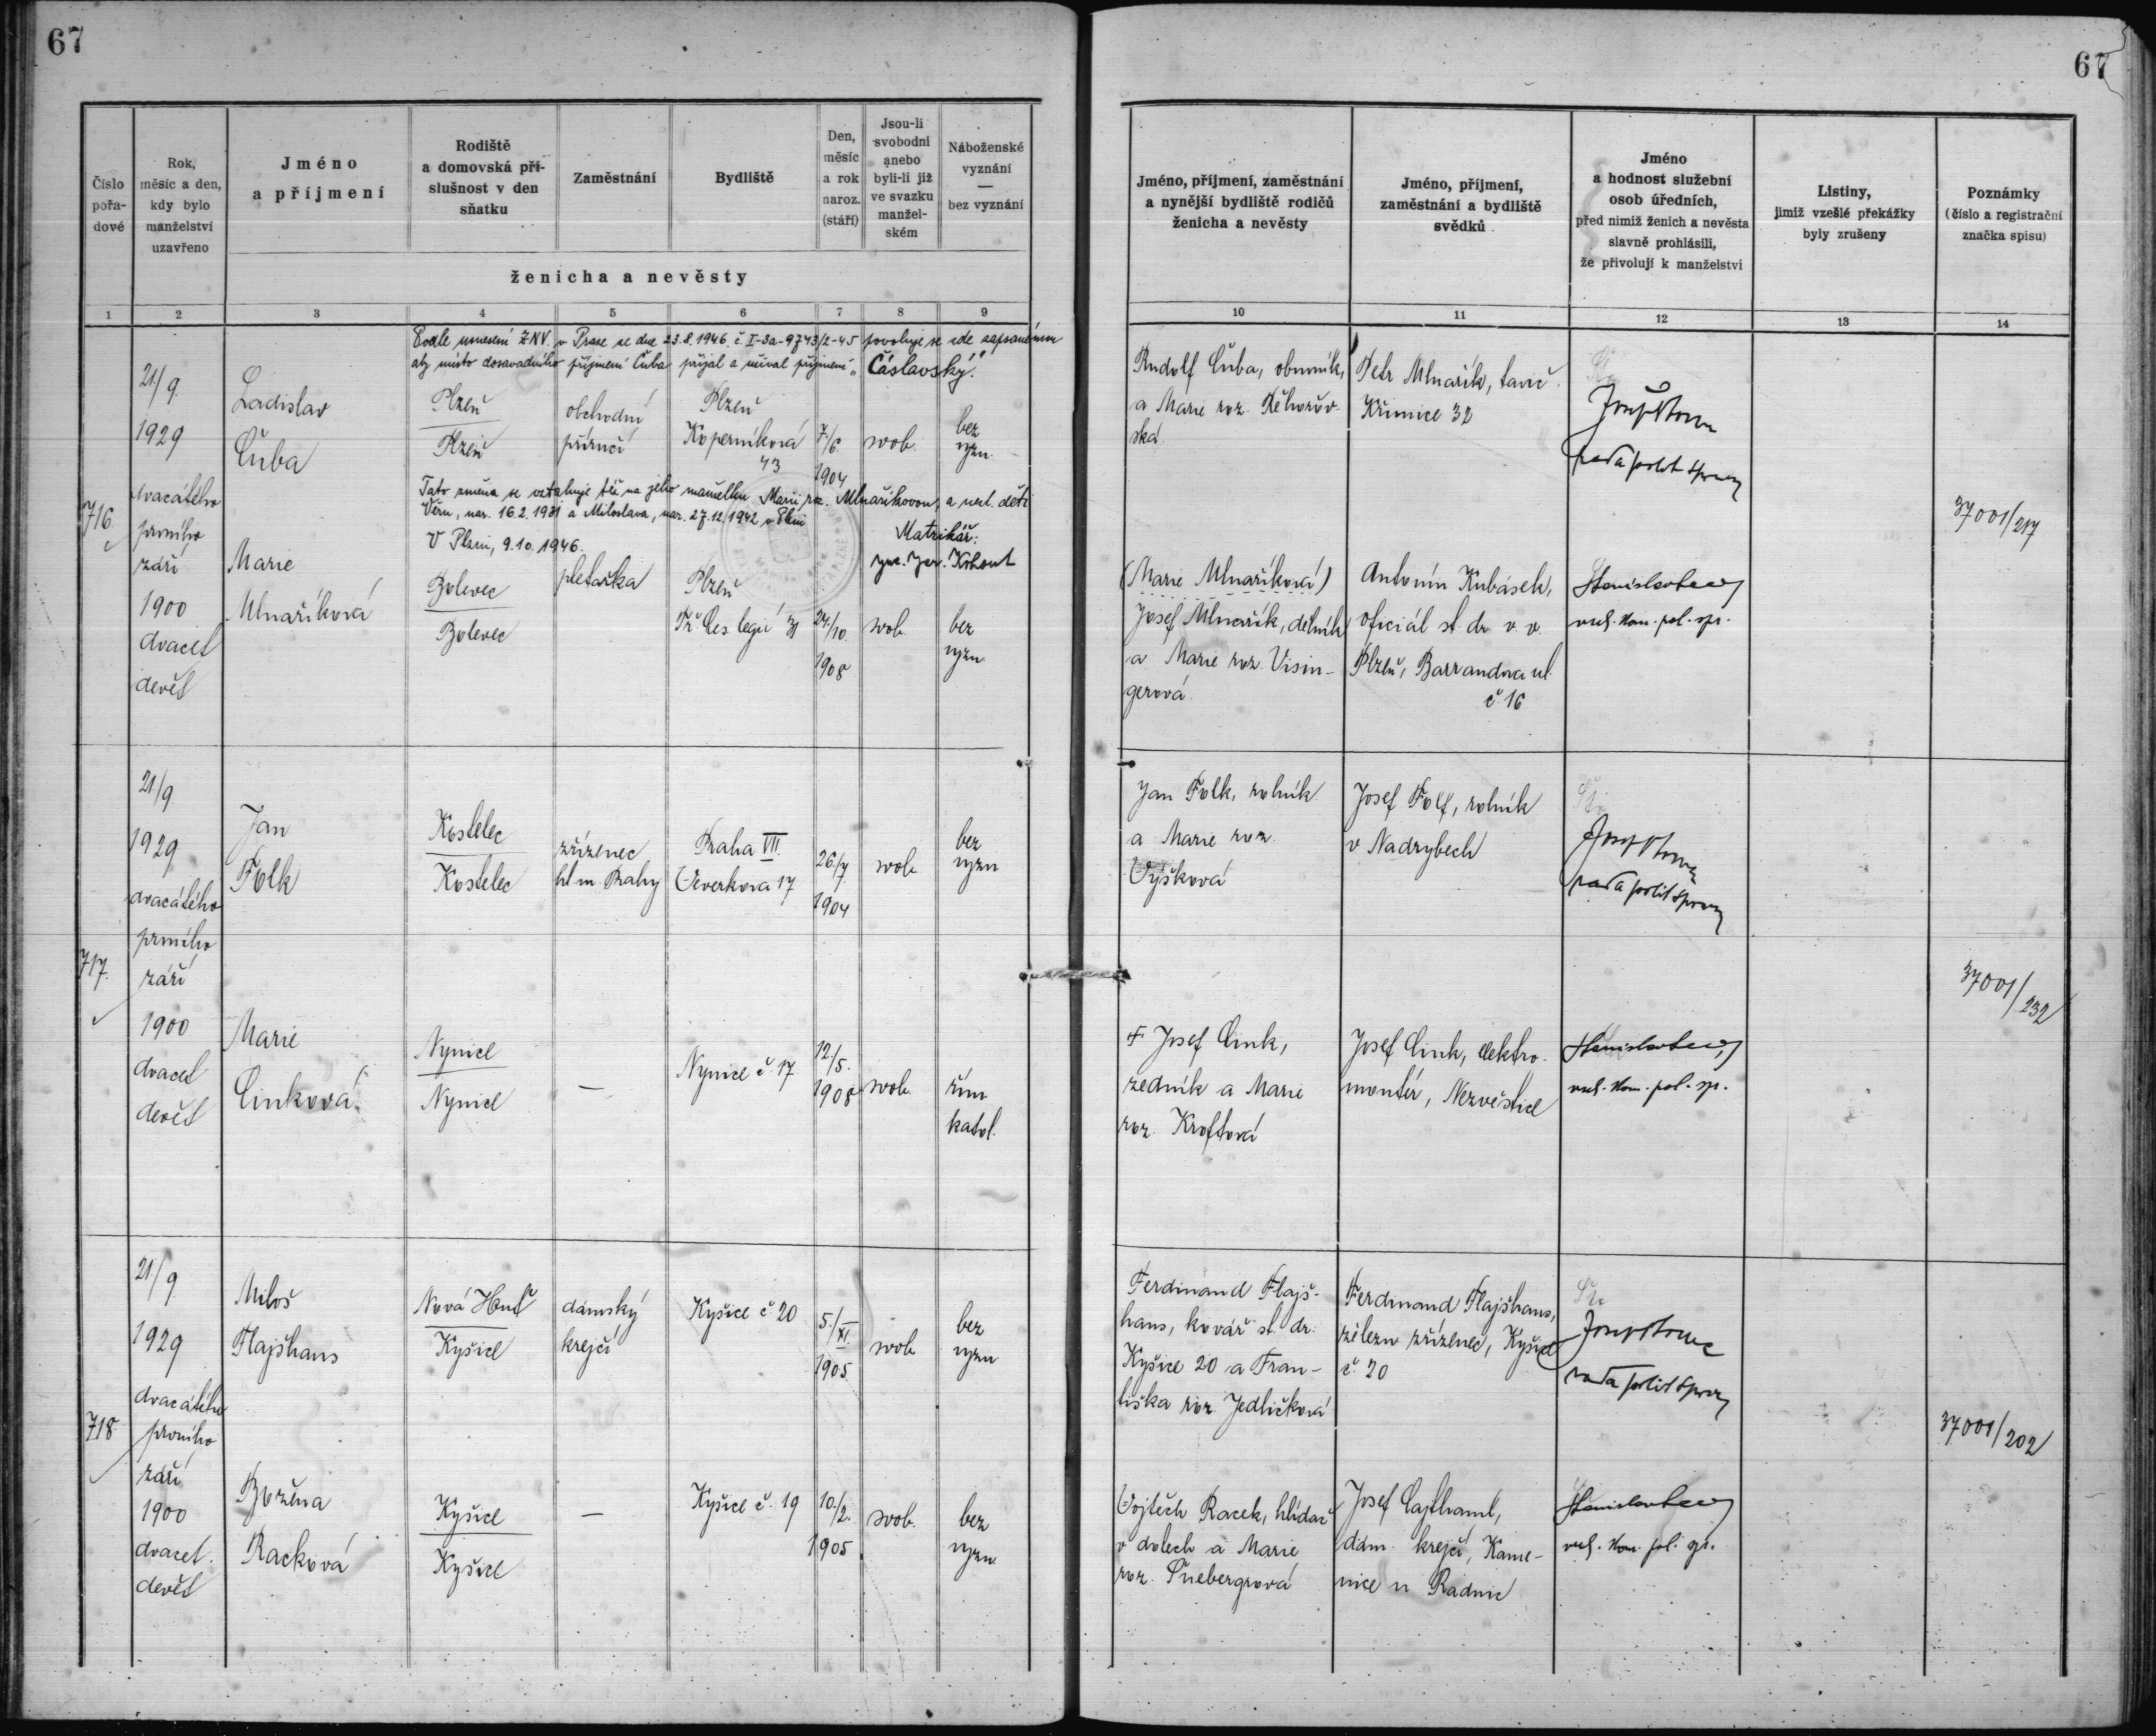 67
67
Číslo pořadové
Rok, měsíc a den, kdy bylo manželství uzavřeno
Jméno a příjmení
Rodiště a domovská příslušnost v den sňatku
Zaměstnání
Bydliště
Den, měsíc a rok naroz. (stáří)
Jsou-li svobodni anebo byli-li již ve svazku manželském
Náboženské vyznání — bez vyznání
ženicha a nevěsty
Jméno, příjmení, zaměstnání a nynější bydliště rodičů ženicha a nevěsty
Jméno, příjmení, zaměstnání a bydliště svědků
Jméno a hodnost služební osob úředních, před nimiž ženich a nevěsta slavně prohlásili, že přivolují k manželství
Listiny, jimiž vzešlé překážky byly zrušeny
Poznámky (číslo a registrační značka spisu)
1 2 3 4 5 6 7 8 9
10 11 12 13 14
Podle usnesení ZNV. v Praze ze dne 23.8.1946. č. I-3a-9743/2-45 povoluje se zde zapsanému
aby místo dosavadního příjmení Čuba přijal a užíval příjmení „Čáslavský."
716.
21/9.
1929
dvacátého
prvního
září
1900
dvacet
devět
Ladislav
Čuba
Plzeň
Plzeň
obchodní
příručí
Plzeň
Koperníková
43
7./6.
1904
svob.
bez
vyzn.
Tato změna se vztahuje též na jeho manželku Marii roz. Mlnaříkovou, a nezl. děti
Věru, nar. 16.2.1931 a Miloslava, nar. 27.12.1942 v Plzni
V Plzni, 9.10.1946.
Matrikář:
Marie
Mlnaříková
Bolevec
Bolevec
pletařka
Plzeň
Tř. čes. legií 31
24./10.
1908
svob.
bez
vyzn.
Rudolf Čuba, obuvník,
a Marie roz. Řehořov-
ská.
Petr Mlnařík, tavič
Křimice 32
rada polit. správy
(Marie Mlnaříková)
Josef Mlnařík, dělník
a Marie roz. Visin-
gerová.
Antonín Kubásek,
oficiál st. dr. v. v.
Plzeň, Barrandova ul.
č. 16
vrch. kom. pol. spr.
37001/217
717.
21/9.
1929
dvacátého
prvního
září
1900
dvacet
devět
Jan
Folk
Kostelec
Kostelec
zřízenec
hl. m. Prahy
Praha VII.
Veverkova 17
26./7.
1904
svob.
bez
vyzn.
Marie
Cinková.
Nynice
Nynice
—
Nynice č. 17
12./5.
1908
svob.
řím.
katol.
Jan Folk, rolník
a Marie roz.
Vyšková
Josef Folk, rolník
v Nadrybech
rada polit. správy
+ Josef Cink,
zedník a Marie
roz. Kroftová
Josef Cink, elektro-
montér, Nezvěstice
vrch. kom. pol. spr.
37001/232
718.
21/9.
1929
dvacátého
prvního
září
1900
dvacet
devět
Miloš
Flajšhans
Nová Huť
Kyšice
dámský
krejčí
Kyšice č. 20
5./XI.
1905
svob.
bez
vyzn.
Božena
Racková
Kyšice
Kyšice
—
Kyšice č. 19
10./2.
1905.
svob.
bez
vyzn.
Ferdinand Flajš-
hans, kovář st. dr.
Kyšice 20 a Fran-
tiška roz. Jedličková
Ferdinand Flajšhans,
železn. zřízenec, Kyšice
č. 20
rada polit. správy
Vojtěch Racek, hlídač
v dolech a Marie
roz. Šnebergrová
Josef Cajthaml,
dám. krejčí, Kame-
nice u Radnic
vrch. kom. pol. spr.
37001/202